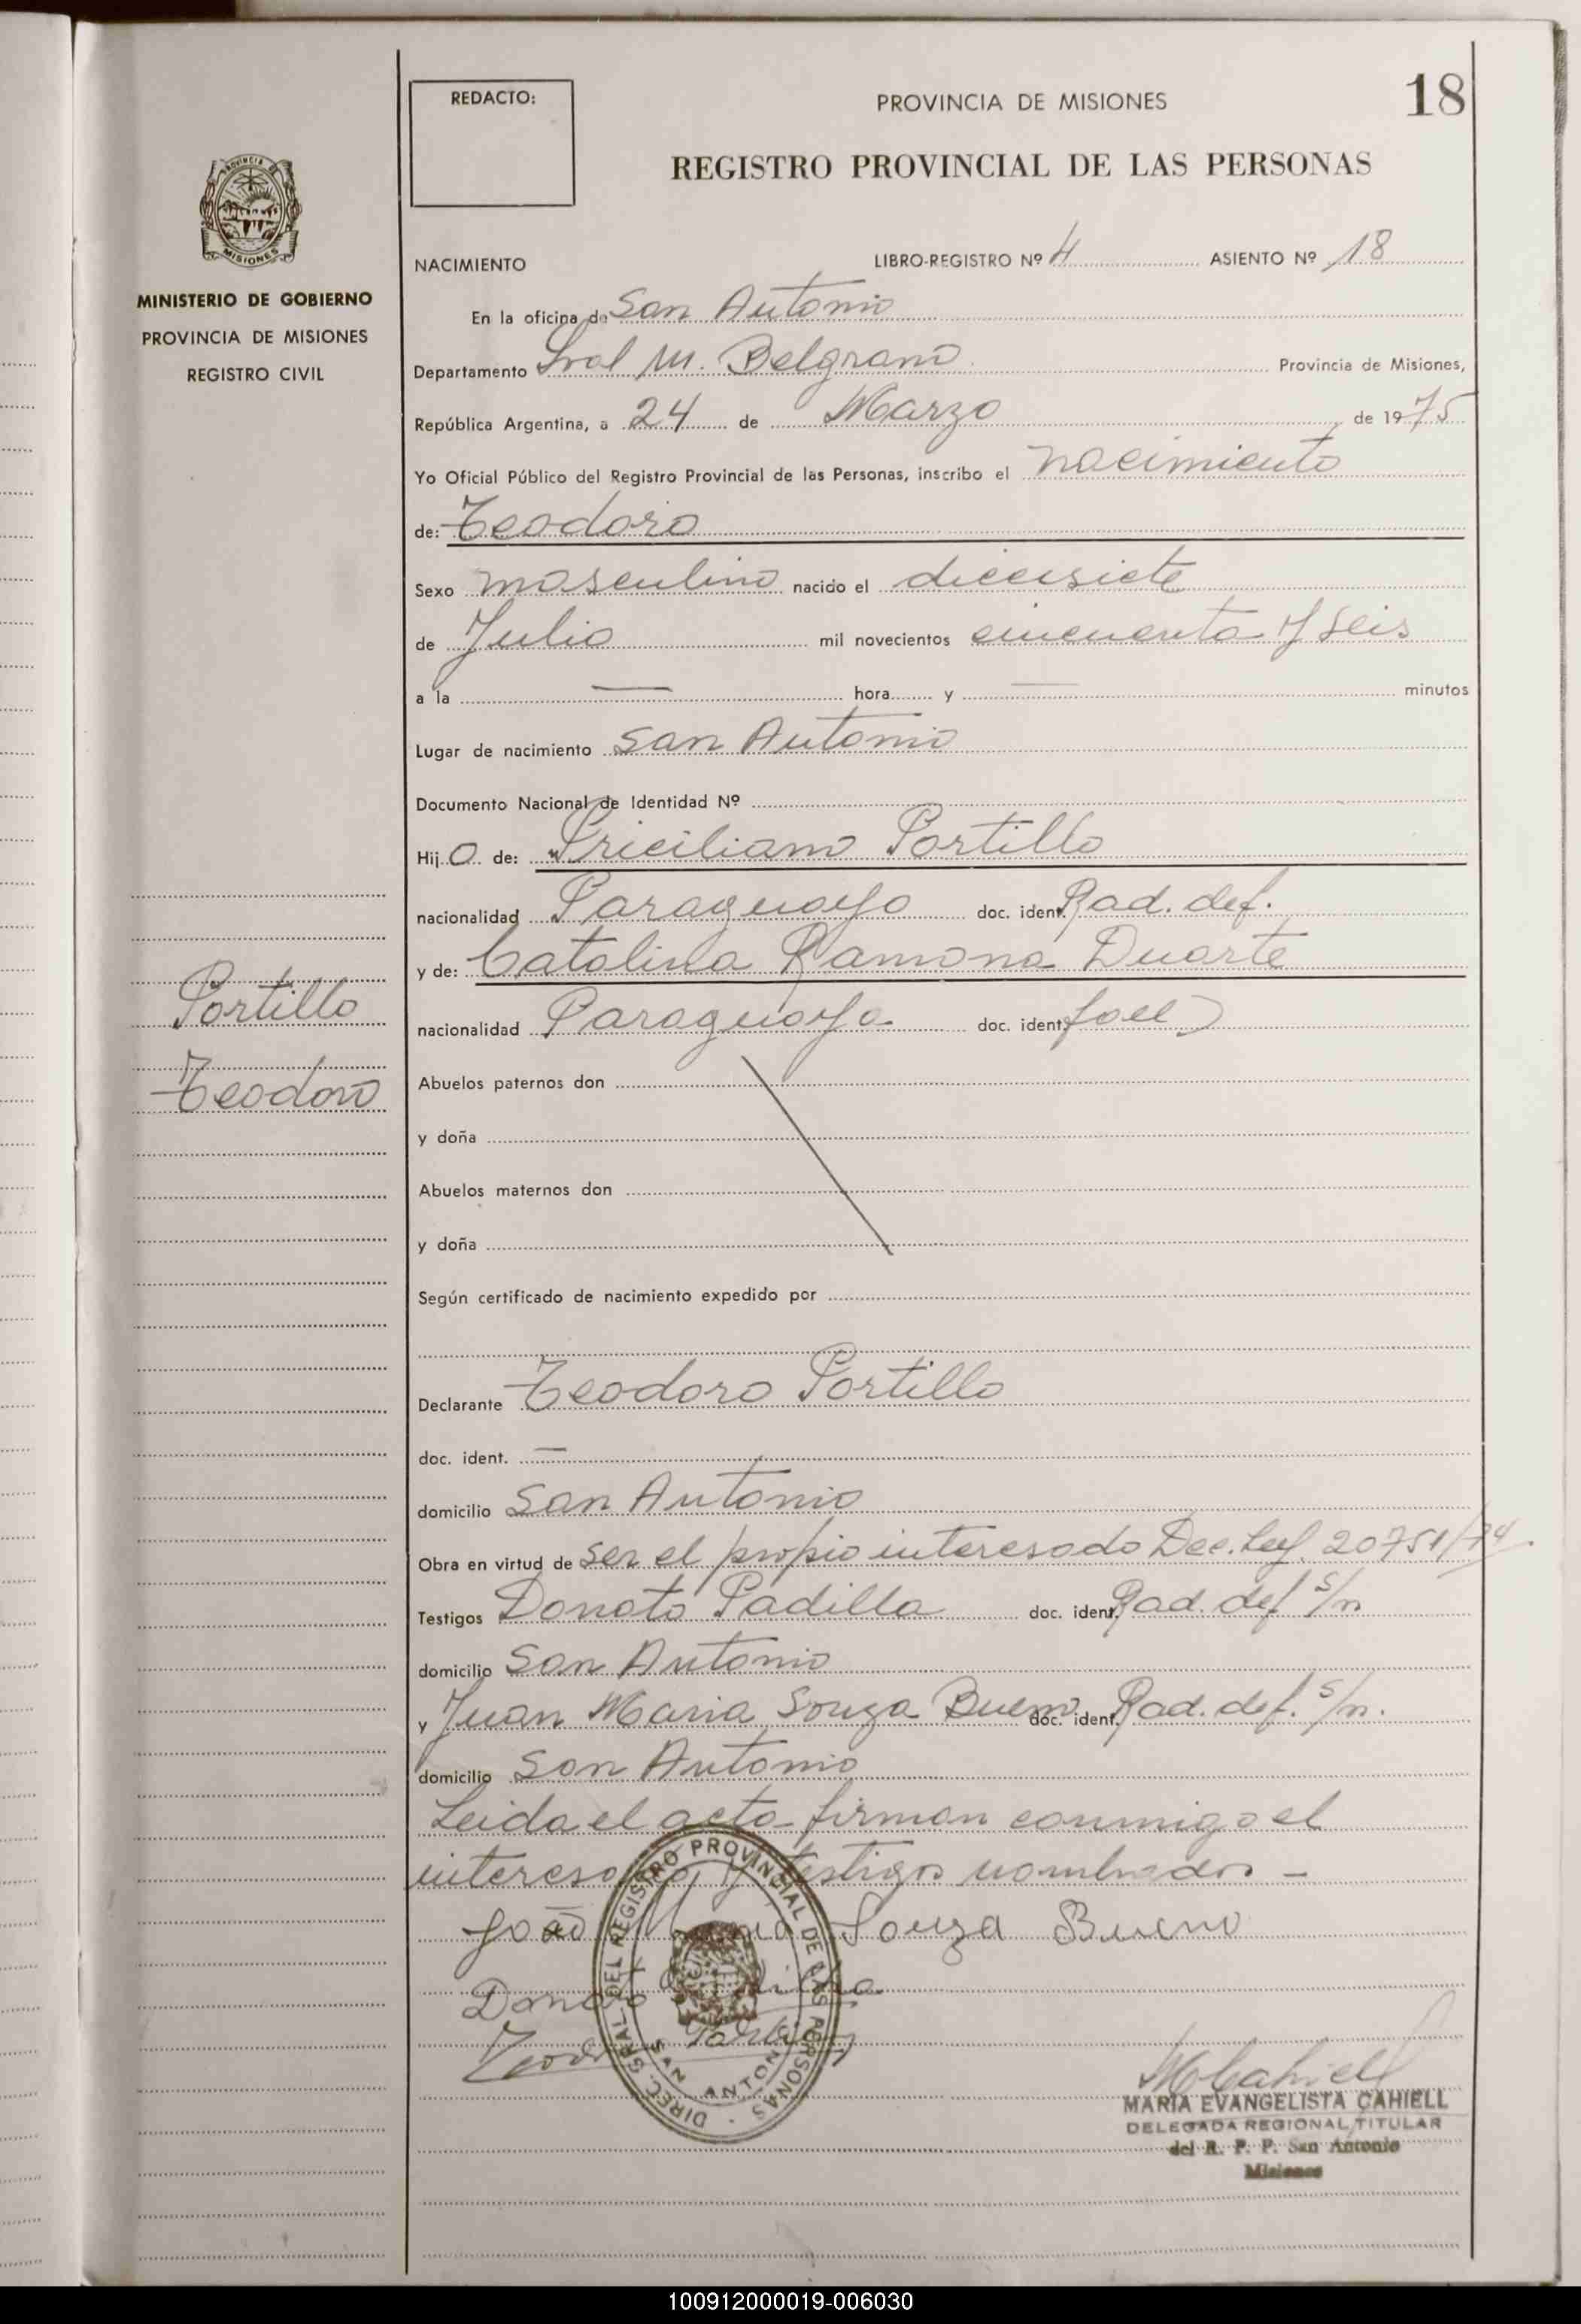 18
REDACTO:
PROVINCIA DE MISIONES
REGISTRO PROVINCIAL DE LAS PERSONAS
PROVINCIA
MISIONES
MINISTERIO DE GOBIERNO
PROVINCIA DE MISIONES
REGISTRO CIVIL
NACIMIENTO LIBRO-REGISTRO Nº 4 ASIENTO Nº 18
En la oficina de San Antonio
Departamento Gral M. Belgrano Provincia de Misiones,
República Argentina, a 24 de Marzo de 1975
Yo Oficial Público del Registro Provincial de las Personas, inscribo el nacimiento
de: Teodoro
Sexo masculino nacido el diecisiete
de Julio mil novecientos cincuenta y seis
a la — hora y — minutos
Lugar de nacimiento San Antonio
Documento Nacional de Identidad Nº
Hijo de: Priciliano Portillo
nacionalidad Paraguayo doc. ident. Rad. def.
y de: Catalina Ramona Duarte
nacionalidad Paraguaya doc. ident.
Portillo
Teodoro
Abuelos paternos don
y doña
Abuelos maternos don
y doña
Según certificado de nacimiento expedido por
Declarante Teodoro Portillo
doc. ident. —
domicilio San Antonio
Obra en virtud de ser el propio interesado Dec. Ley 20751/74.
Testigos Donato Padilla doc. ident. Rad. def. s/n
domicilio San Antonio
y Juan Maria Souza Bueno doc. ident. Rad. def. s/n.
domicilio San Antonio
Leida el acta firman conmigo el
interesado y testigos nombrados -
João Maria Souza Bueno
Donato Padilla
Teodoro Portillo
DIREC. GRAL. DEL REGISTRO PROVINCIAL DE LAS PERSONAS
SAN ANTONIO
MCahiell
MARIA EVANGELISTA CAHIELL
DELEGADA REGIONAL TITULAR
del R. P. P. San Antonio
Misiones
100912000019-006030